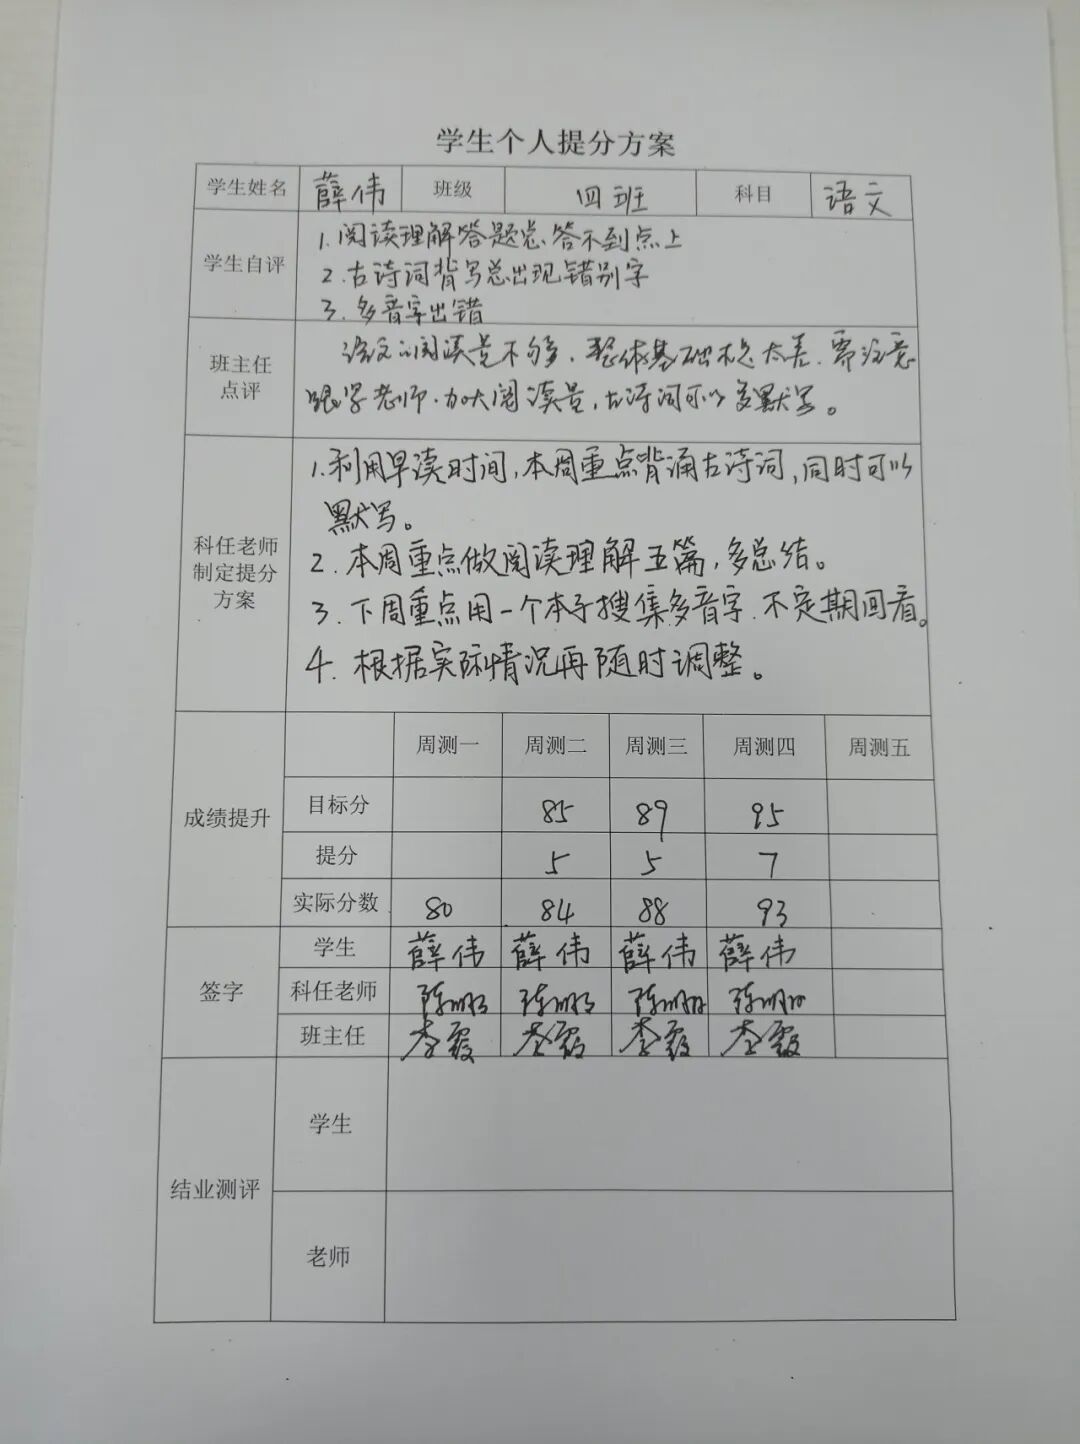 学生个人提分方案
学生姓名 薛伟 班级 四班 科目 语文
学生自评
1.阅读理解答题总答不到点上
2.古诗词背写总出现错别字
3.多音字出错
班主任
点评
语文的阅读量不够,整体基础不是太差.需注意
跟紧老师.加大阅读量,古诗词可以多默写。
科任老师
制定提分
方案
1.利用早读时间,本周重点背诵古诗词,同时可以
默写。
2.本周重点做阅读理解五篇,多总结。
3.下周重点用一个本子搜集多音字.不定期回看。
4.根据实际情况再随时调整。
成绩提升
周测一 周测二 周测三 周测四 周测五
目标分 85 89 95
提分 5 5 7
实际分数 80 84 88 93
签字
学生 薛伟 薛伟 薛伟 薛伟
科任老师
班主任 李霞 李霞 李霞 李霞
结业测评
学生
老师